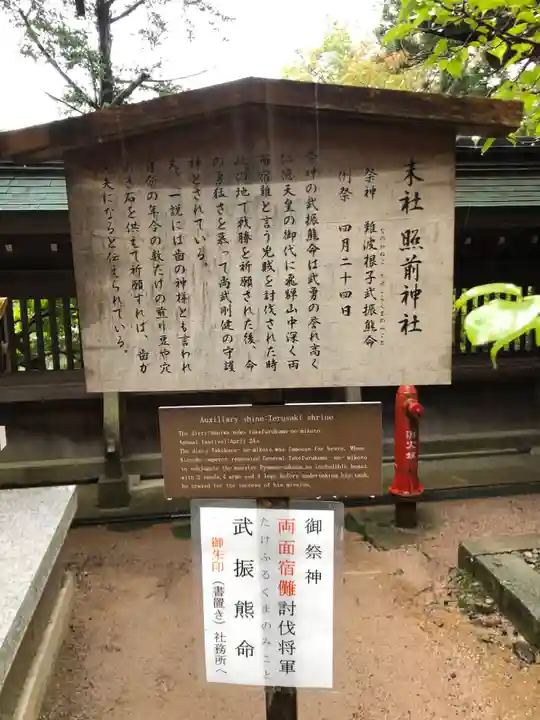 末社 照前神社
祭神 難波根子武振熊命
例祭 四月二十四日
祭神の武振熊命は武勇の誉れ高く
仁徳天皇の御代に飛騨山中深く両
面宿儺と言う兇賊を討伐された時
此の地で戦勝を祈願された後、今
の勇猛さを慕って尚武剛健の守護
神とされている。
又、一説には歯の神様とも言われ
自分の年令の数だけの煎り豆や穴
あき石を供えて祈願すれば、歯が
丈夫になると伝えられている。
Auxiliary shine:Terusaki shrine
Annual festival:April 24
with 2 heads,4 arms and 4 legs.Before undertaking his task,
he prayed for the success of his mission.
御祭神
両面宿儺討伐将軍
たけふるくまのみこと
武振熊命
御朱印(書置き)社務所へ
消火栓